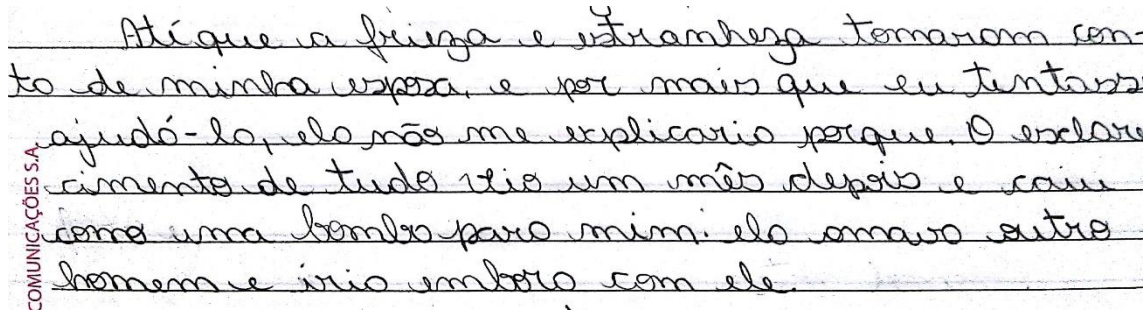 Atíque a frieza e estranheza tomaram con-
ta de minha esposa, e por mais que eu tentass
ajudá-la, ela não me explicaria porque. O esclare
cimento de tudo veio um mês depois e caiu
como uma bomba para mim: ela amava outro
homem e iria embora com ele.
COMUNICAÇÕES S.A.